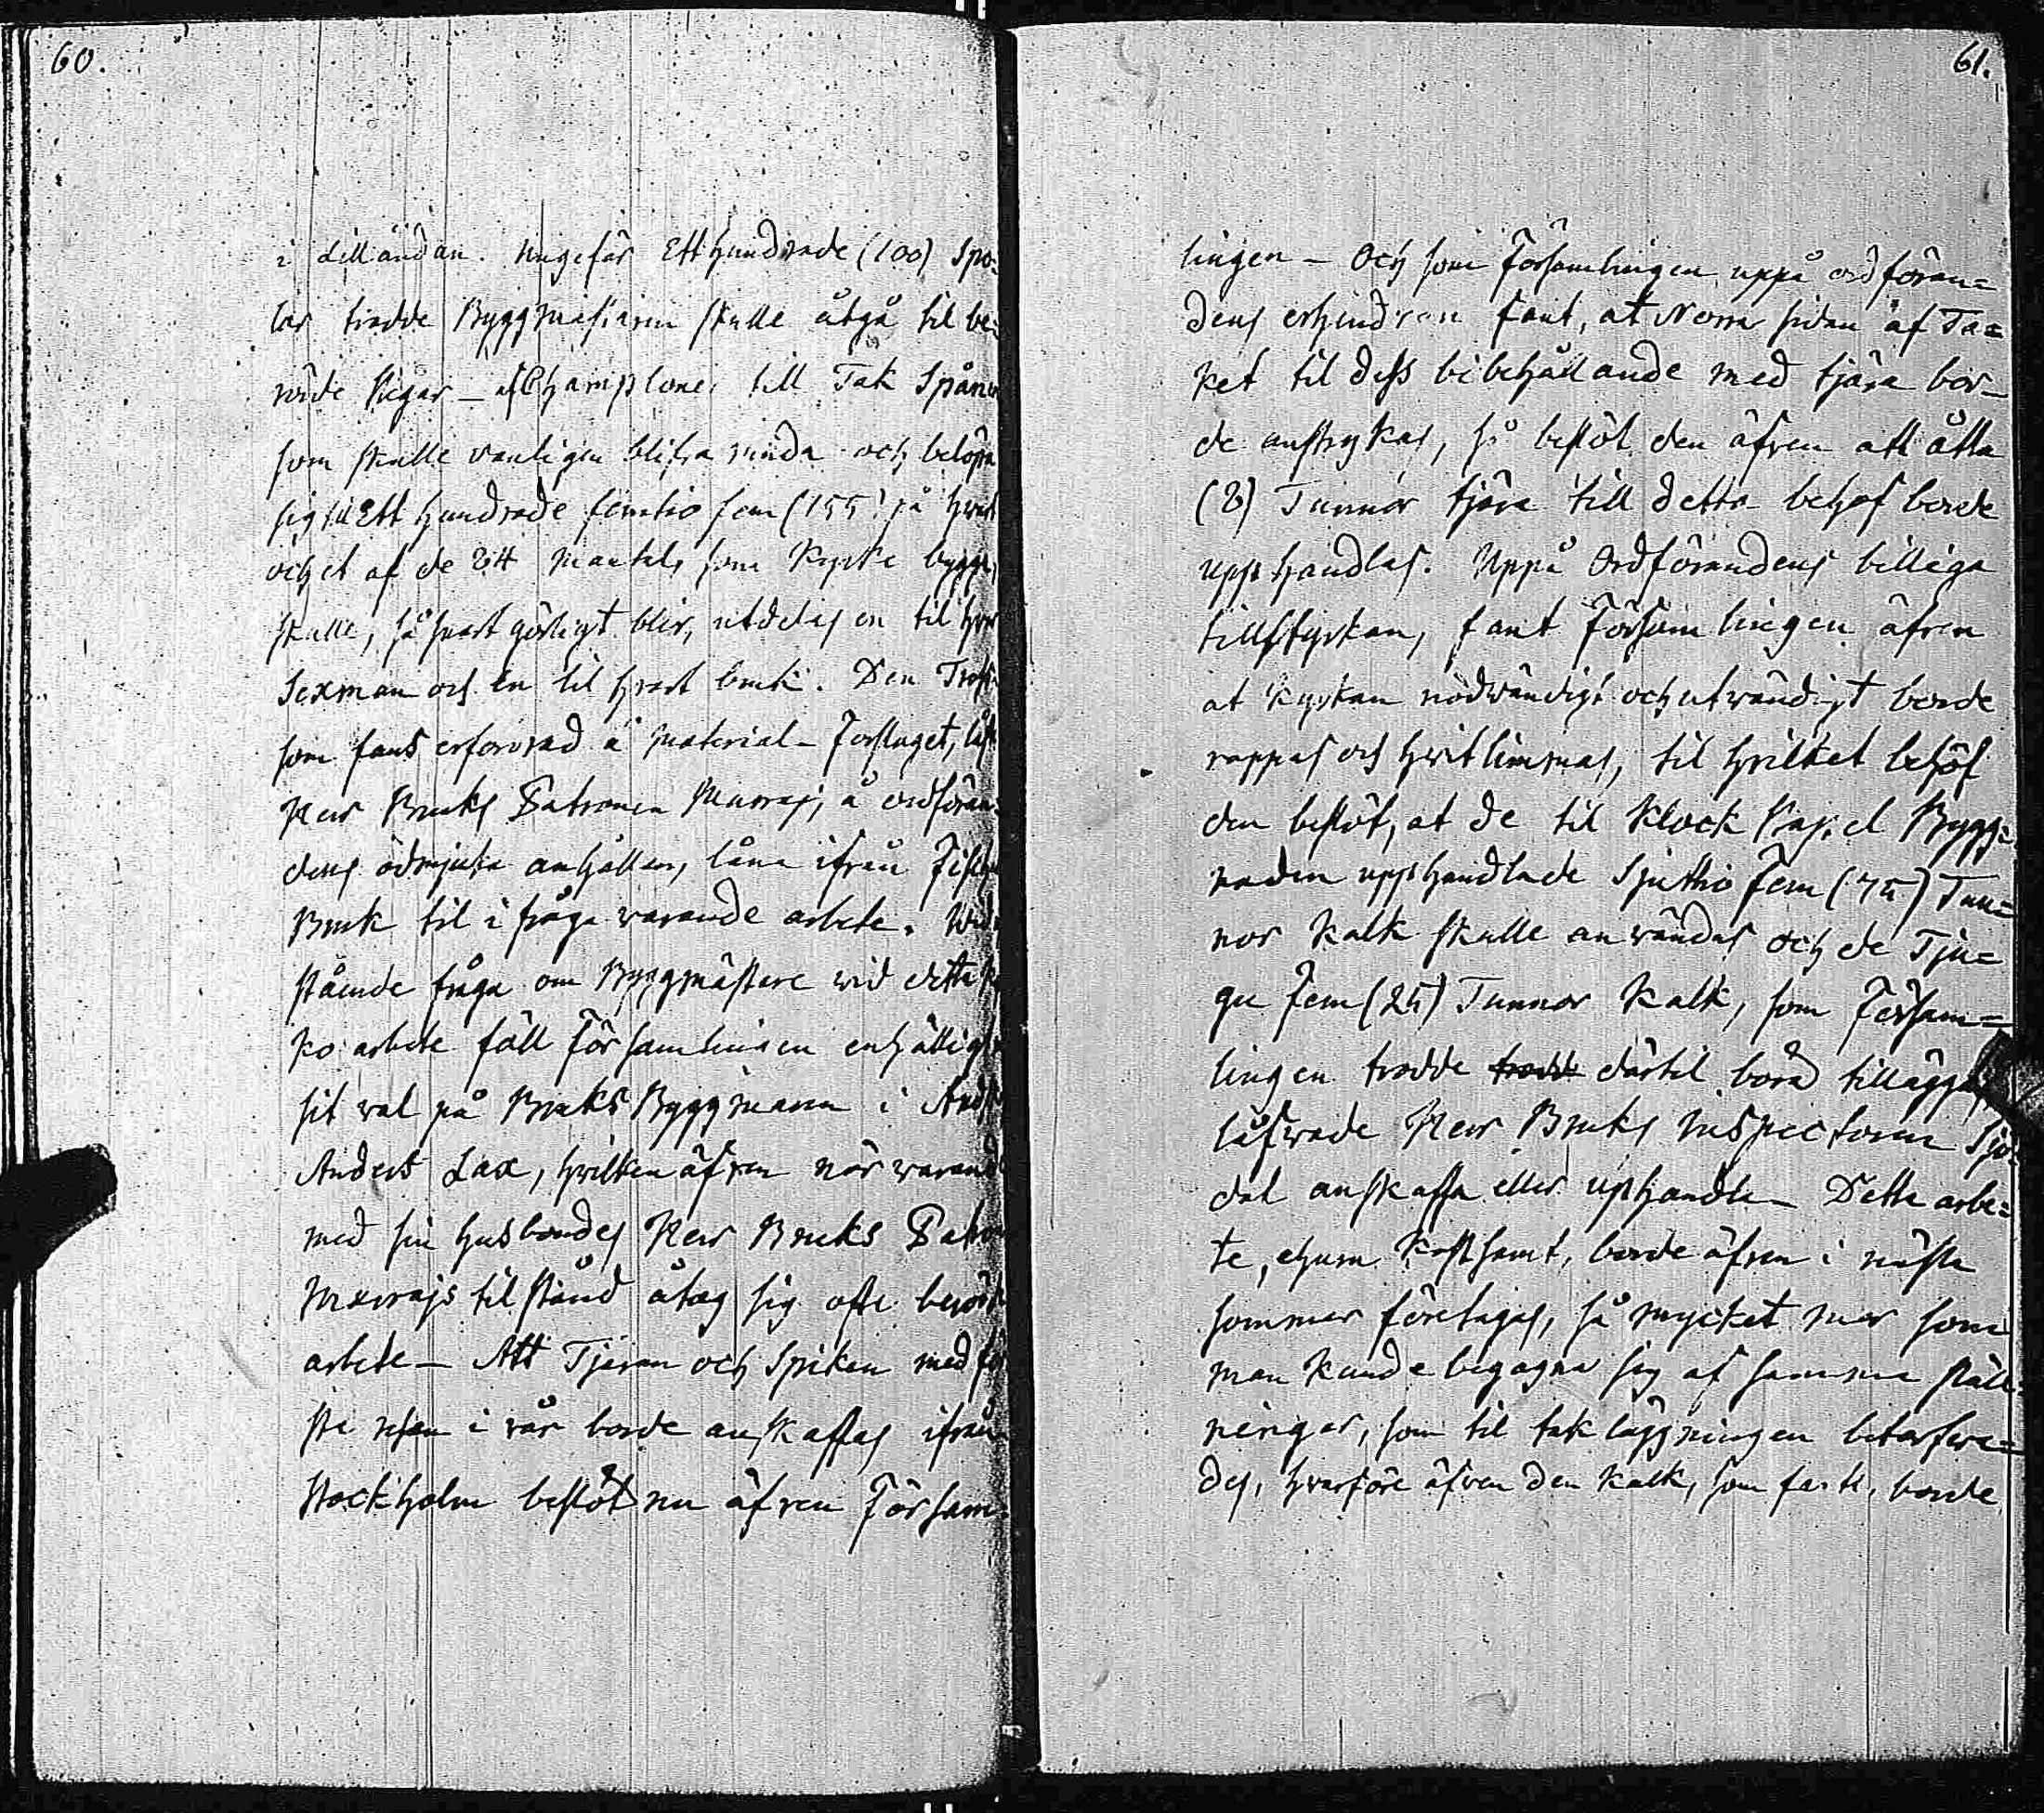 60.
i Lilländan. Ungefär Ett hundrade (100) Spo-
lar trodde Byggmästarn skulle åtgå til be-
rörde stegar – af Champloner till Tak Spånen
som skulle vanligen blifva runda och belöpa
sig til Ett hundrade femtio fem (155) på hvart
och et af de 24 Mantal, som Kyrka bygga,
skulle, så snart görligt blir, utdelas en til hvar
Sexman och en til hvart bruk. Den
som fans erforvrad å Material-Förslaget,
Herr Bruks Patronen Murray, å ordföran-
dens ödmjuka anhållan, låna ifrån
Bruk til i fråga varande arbete. Wid
stående fråga om Byggmästare wid detta
ko arbete föll Församlingen enhälligt
sit val på Bruks Byggmästarn i
Anders Lax, hvilken äfven när varande
med sin husbondes Herr Bruks Patron
Murrays tilstånd åtog sig ofta berörde
arbete – Att Tjäran och Spiken med för
sta resan i vår borde anskaffas ifrån
Stockholm beslöt nu äfven Försam-
61.
lingen – Och som Församlingen uppå ordföran=
dens erhindran fant, at Norra sidan af Ta=
ket til dess bibehållande med tjära bor-
de anstrykas, så beslöt den äfven att åtta
(8) Tunnor tjära till detta behof borde
upphandlas. Uppå Ordförandens billiga
tillstyrkan, fant Församlingen äfven
at Kyrkan nödwändigt och utwändigt borde
rappas och hwitlimmas, til hvilket behöf
den beslöt, at de til Klock Stapel Bygg=
naden upphandlade Sjuttio Fem (75) Tun=
nor Kalk skulle användas och de Tju=
gu Fem (25) Tunnor Kalk, som Försam=
lingen trodde trodde därtil borde tilläggas,
låfwade Herr Bruks Inspectoren Sjö-
dal anskaffa eller uphandla – Detta arbe=
te, ehuru Kostsamt, borde äfven i nästa
sommar företagas, så mycket mer som
man kunde begagna sig af samma ställ-
ningar, som til tak läggningen betarfwa=
des, hvarföre äfven den Kalk, som fants, borde